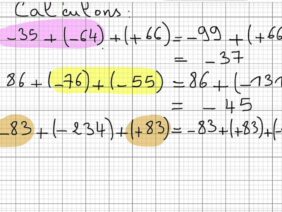 Calculons:
-35 + (-64) + (+66) = -99 + (+66
= -37
86 + (-76) + (-55) = 86 + (-131
= -45
-83 + (-234) + (+83) = -83 + (+83) + (-